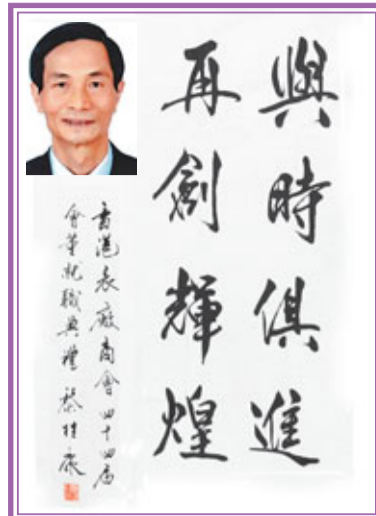 與時俱進
再創輝煌
香港表廠商會四十四屆
會董就職典禮 黎桂康